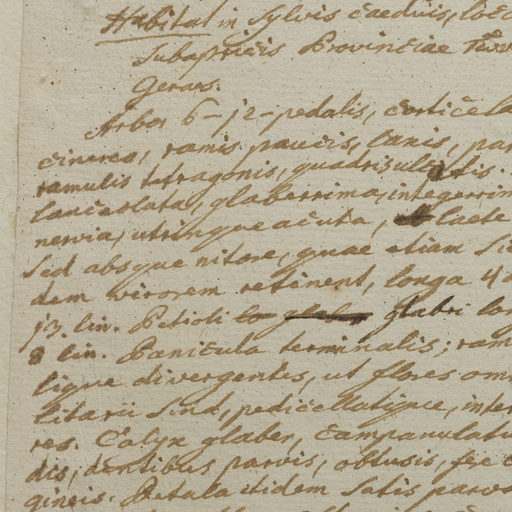 Habitat in Sylvis caeduis, loc
Subapricis Provinciae
Geraes.
Arbor 6-12-pedalis, cortice la
cinereo, ramis paucis, laxis, pa
ramulis tetragonis, quadrisulcatis.
lanceolata, glaberrima, integerrim
nervia, utrinque acuta, laete
sed absque nitore, quae etiam Si
dem virorem retinent, longa 4
13 lin. Petioli glabri lon
8 lin. Panicula terminalis; ram
tique divergentes, ut flores om
litarii sint, pedicellatique, inter
res. Calyx glaber, campanulatu
dis; dentibus parvis, obtusis, fere
gineis. Petala itidem satis parv